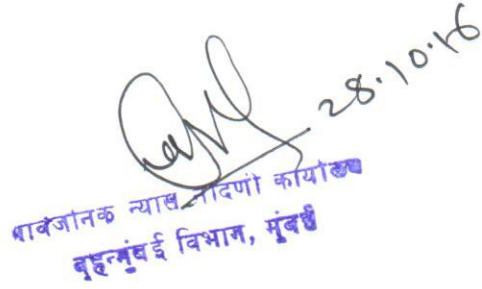 28.10.16
सार्वजनिक न्यास नोंदणी कार्यालय
बृहन्मुंबई विभाग, मुंबई